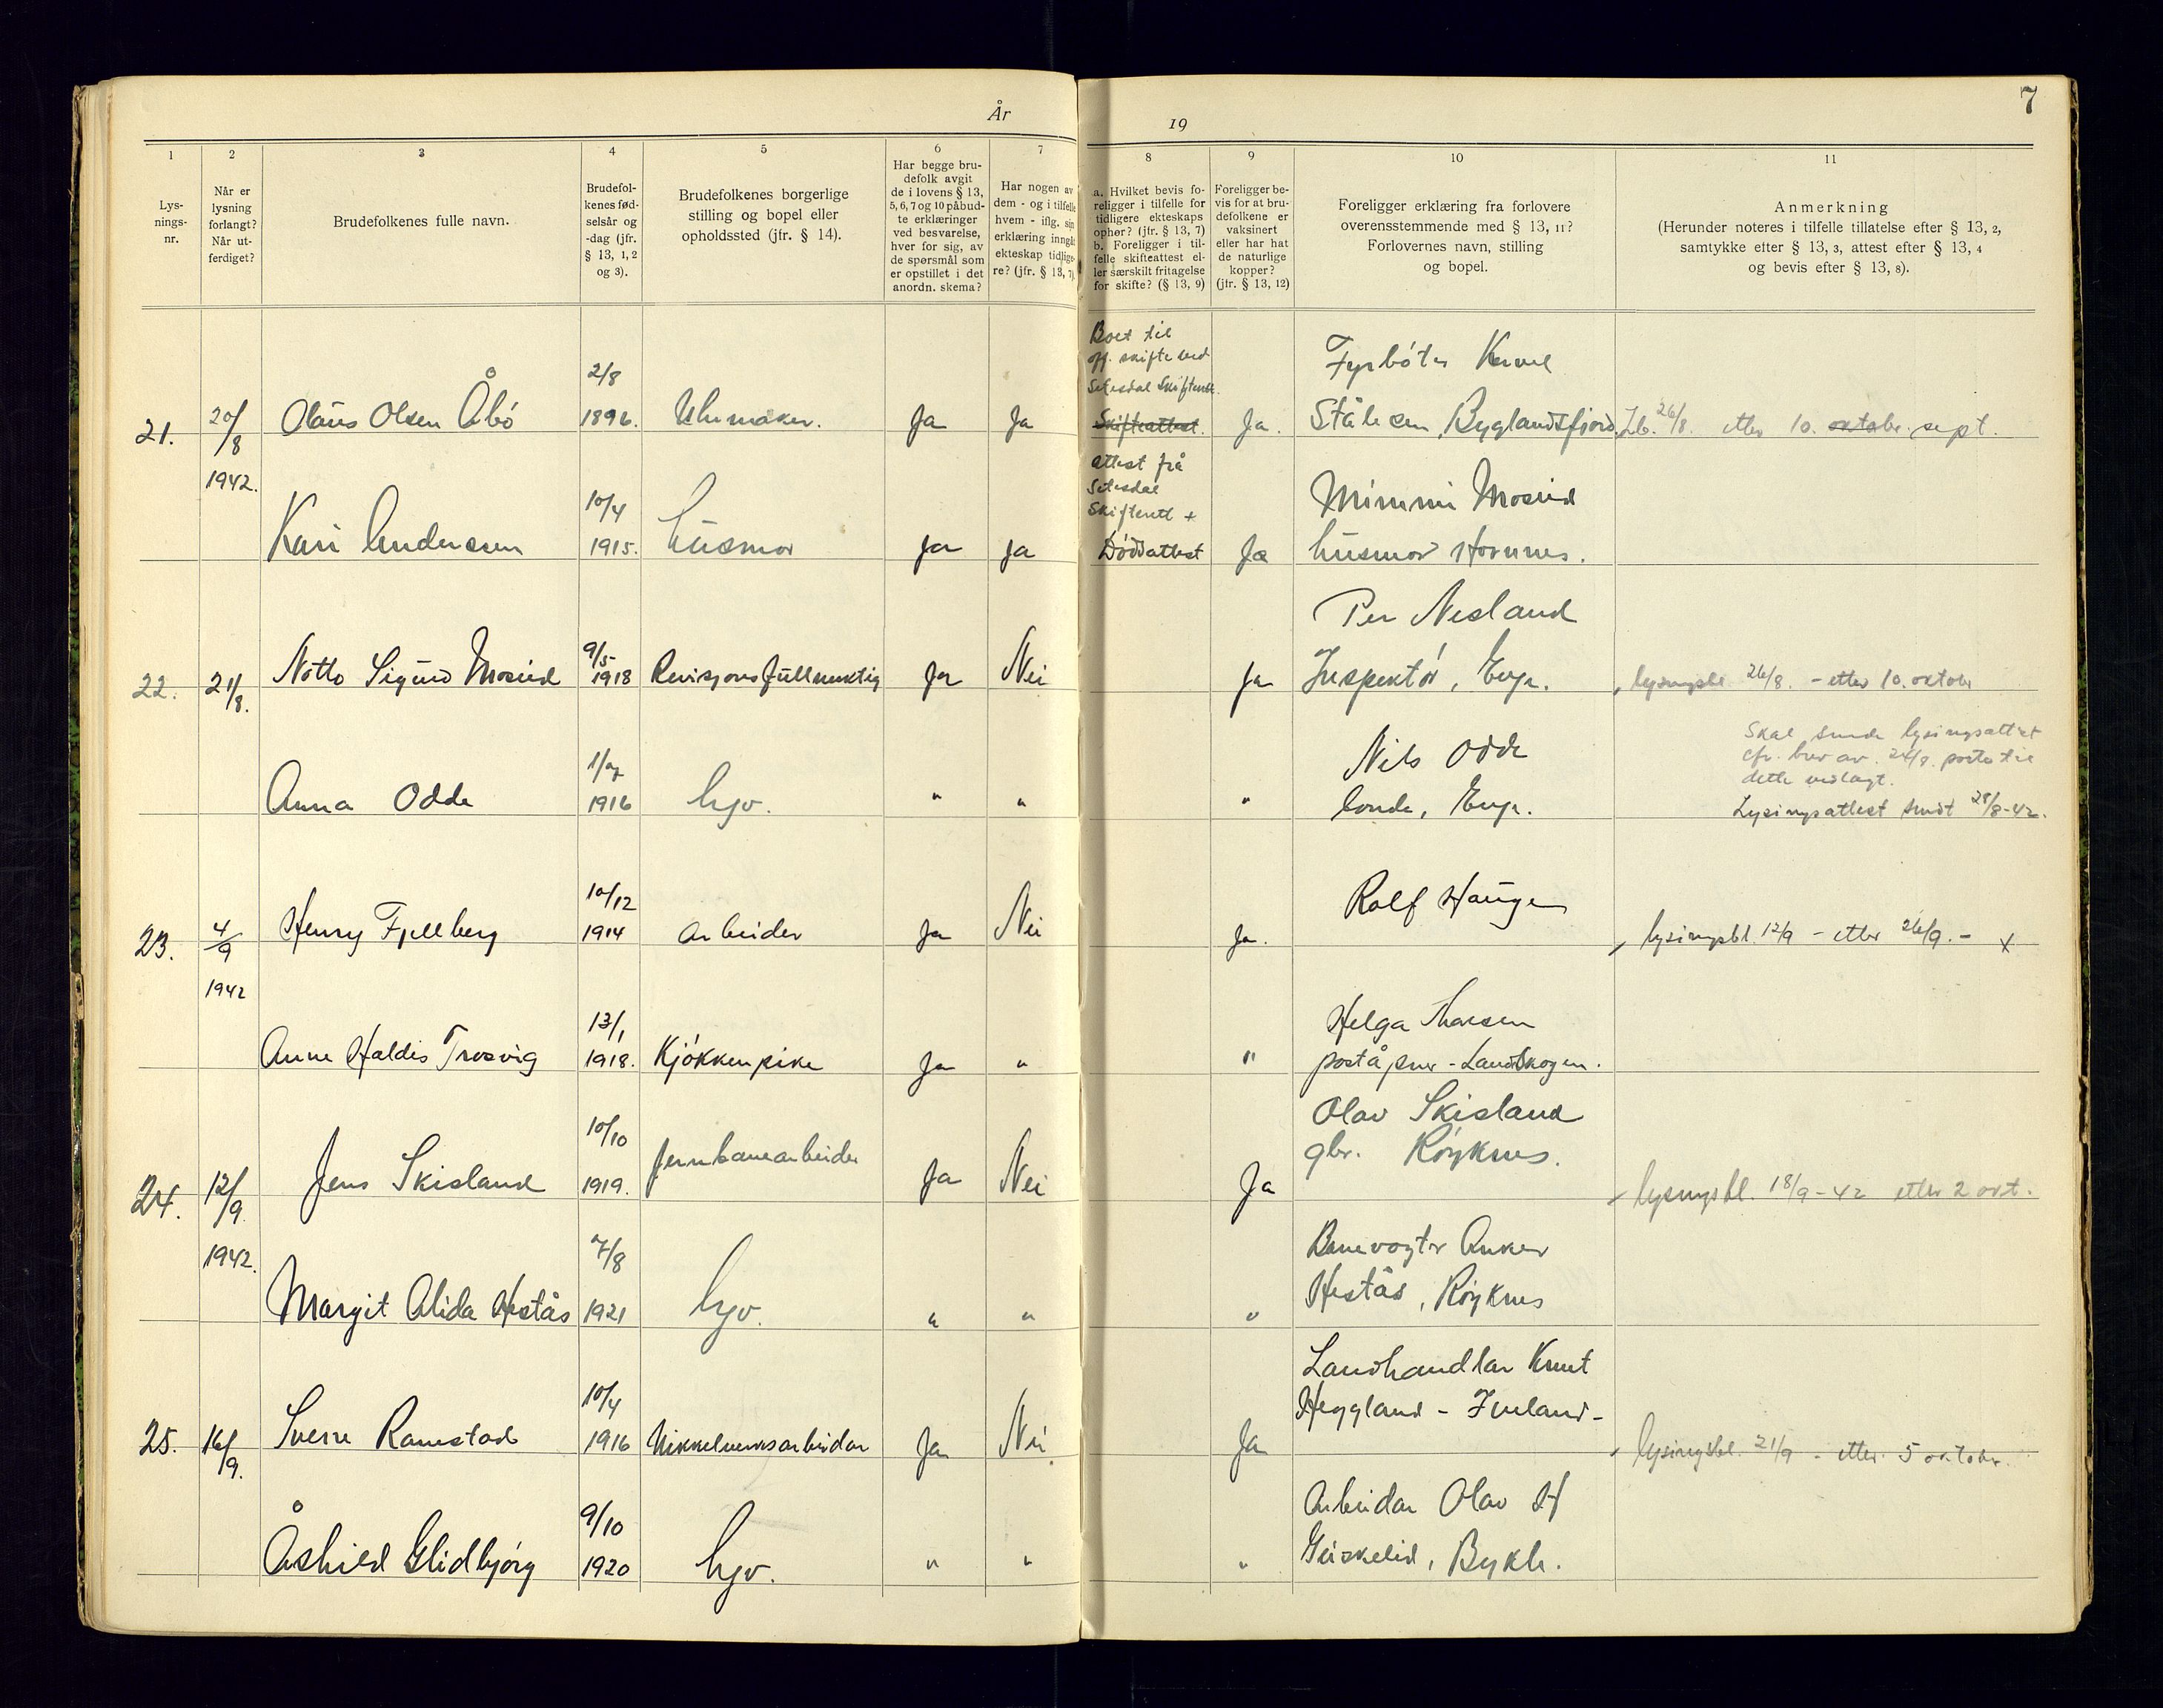 År
19
7
1
2
3
4
5
6
7
8
9
10
11
Lys-
nings-
nr.
Når er
lysning
forlangt?
Når ut-
ferdiget?
Brudefolkenes fulle navn.
Brudefol-
kenes fød-
selsår og
-dag (jfr.
§ 13, 1, 2
og 3).
Brudefolkenes borgerlige
stilling og bopel eller
opholdssted (jfr. § 14).
Har begge bru-
defolk avgit
de i lovens § 13,
5, 6, 7 og 10 påbud-
te erklæringer
ved besvarelse,
hver for sig, av
de spørsmål som
er opstillet i det
anordn. skema?
Har nogen av
dem - og i tilfelle
hvem - iflg. sin
erklæring inngått
ekteskap tidlige-
re? (jfr. § 13, 7).
a. Hvilket bevis fo-
religger i tilfelle for
tidligere ekteskaps
ophør? (jfr. § 13, 7)
b. Foreligger i til-
felle skifteattest el-
ler særskilt fritagelse
for skifte? (§ 13, 9)
Foreligger be-
vis for at bru-
defolkene er
vaksinert
eller har hat
de naturlige
kopper?
(jfr. § 13, 12)
Foreligger erklæring fra forlovere
overensstemmende med § 13, 11?
Forlovernes navn, stilling
og bopel.
Anmerkning
(Herunder noteres i tilfelle tillatelse efter § 13, 2,
samtykke efter § 13, 3, attest efter § 13, 4
og bevis efter § 13, 8).
Boet til
off. skifte ved
Setesdal Skifterett.
2/8
Fyrbøter
21. 20/8 Olaus Olsen Åbö 1896. Uhrmaker. Ja Ja Skifteattest. Ja. Ståle sen, Byglandsfjord. Lb. 26/8. etter 10. oktober sept.
1942.
attest frå
Setesdal
Skifterett +
10/4
Mimmi Moseid
Kari Andersen 1915. husmor Ja Ja Dödsattest Ja husmor Hornnes.
Per Nesland
9/5
22. 21/8. Notto Sigurd Moseid 1918 Revisjonsfullmektig Ja Nei Ja Inspektör, Evje. lysingsbl. 26/8. - etter 10. oktober
Skal sende lysingsattest
cfr. brev av. 24/8. porto til
dette vedlagt.
1/7
Nils Odde
Anna Odde 1916 hgv. " " " bonde, Evje. Lysingsattest sendt 28/8-42.
10/12
Rolf Haugen
23. 4/9 Henry Fjellberg 1914 arbeider Ja Nei Ja. lysingsbl. 12/9 - etter 26/9. - x
1942
13/1
Helga
Anne Haldis Tresvig 1918. Kjökkenpike Ja " " poståpner - Landskogen.
Olav Skisland
10/10
gbr. Röyknes.
24. 12/9. Jens Skisland 1919. Jernbanearbeider Ja Nei Ja lysingsbl. 18/9 - 42 etter 2 okt.
1942.
7/8
Banevogter Anker
Margit Alida Hestås 1921 hgv. " " " Hestås, Röyknes
Landhandlar Knut
10/4
Heggland - Iveland -
25. 16/9. Sverre Ramstad 1916 Nikkelverksarbeidar Ja Nei. Ja lysingsbl. 21/9 - etter 5 oktober.
9/10
Arbeidar Olav H
Åshild Glidbjörg 1920 hgv. " " " Geiskelid, Bykle.